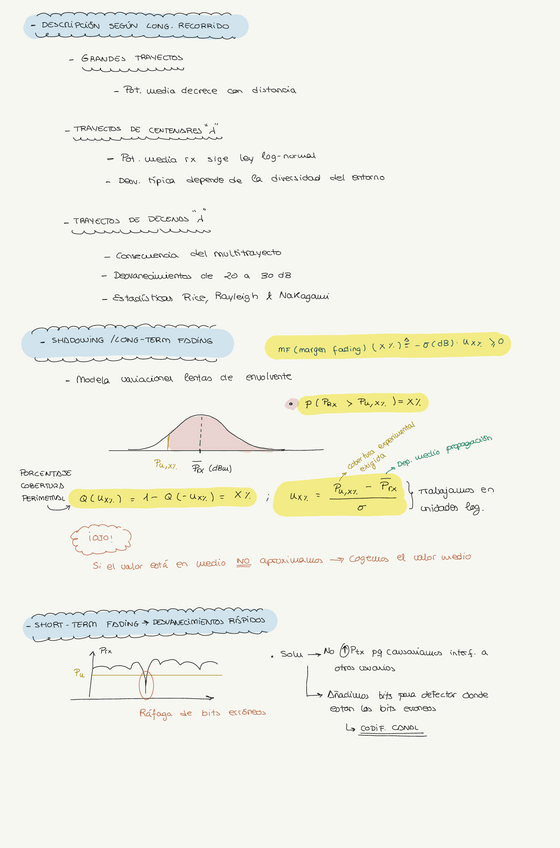 - DESCRIPCIÓN SEGÚN LONG. RECORRIDO
- GRANDES TRAYECTOS
- Pot. media decrece con distancia
- TRAYECTOS DE CENTENARES "λ"
- Pot. media rx sige ley log-normal
- Desv. típica depende de la diversidad del entorno
- TRAYECTOS DE DECENAS "λ"
- Consecuencia del multitrayecto
- Desvanecimientos de 20 a 30 dB
- Estadísticas Rice, Rayleigh & Nakagami
- SHADOWING / LONG-TERM FADING
MF (margen fading) (X%) ≜ - σ(dB) · u_X% ⩾ 0
- Modela variaciones lentas de envolvente
• P(P_Rx > P_u,x%) = X%
P_u,x%
P̅_rx (dBm)
cobertura experimental exigida
Dep. medio propagación
PORCENTAJE
COBERTURA
PERIMETRAL
Q(u_x%) = 1 - Q(-u_x%) = X% ;
u_x% = (P_u,x% - P̅_rx) / σ
Trabajamos en
unidades log.
¡OJO!
Si el valor está en medio NO aproximamos → Cogemos el valor medio
- SHORT-TERM FADING → DESVANECIMIENTOS RÁPIDOS
P_rx
P_u
Ráfaga de bits erróneos
• Solu → No ↑ P_tx pq causaríamos interf. a
otros usuarios
→ Añadimos bits para detectar donde
estan los bits erroneos
↳ CODIF. CANAL